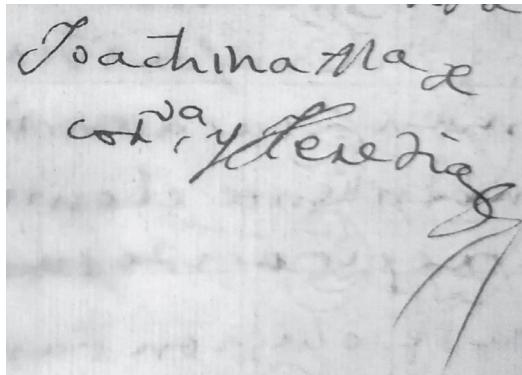 Joachina Ma de
Cordva, y Heredia